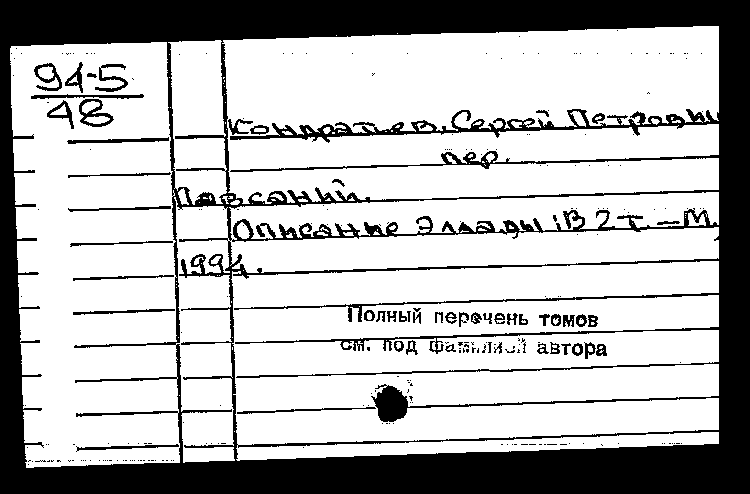 94-5
48
Кондратьев, Сергей Петрови
пер.
Павсаний.
Описание Эллады: В 2 т. — М.,
1994.
Полный перечень томов
см. под фамилией автора